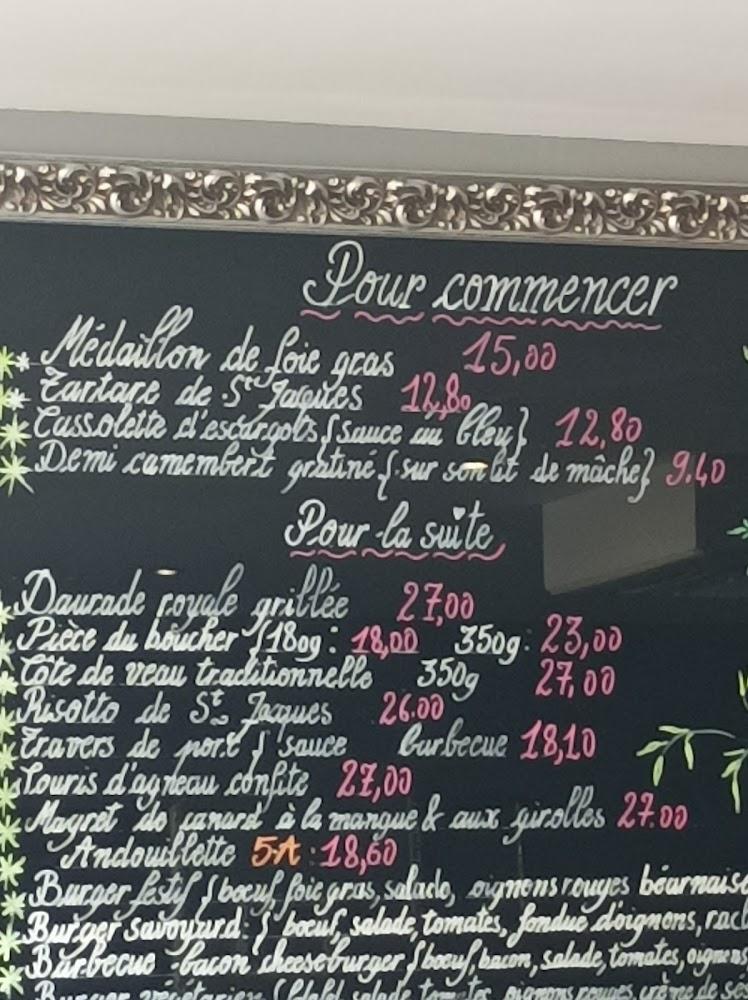 Pour commencer
Médaillon de foie gras 15,00
Tartare de St Jaques 12,80
Cassolette d'escargots { sauce au bleu } 12,80
Demi camembert gratiné { sur son lit de mâche } 9.40
Pour la suite
Daurade royale grillée 27,00
Pièce du boucher { 180g : 18,00 350g : 23,00
Côte de veau traditionnelle 350g 27,00
Risotto de St Jaques 26.00
Travers de porc { sauce barbecue 18,10
Souris d'agneau confite 27,00
Magret de canard à la mangue & aux girolles 27.00
Andouillette 5A : 18,60
Burger festif { boeuf, foie gras, salade, oignons rouges béarnaise
Burger savoyard : { boeuf, salade, tomates, fondue d'oignons, racl
Barbecue bacon cheeseburger { boeuf, bacon, salade, tomates, oignons
Burger végétarien salade tomates, oignons rouges crème de